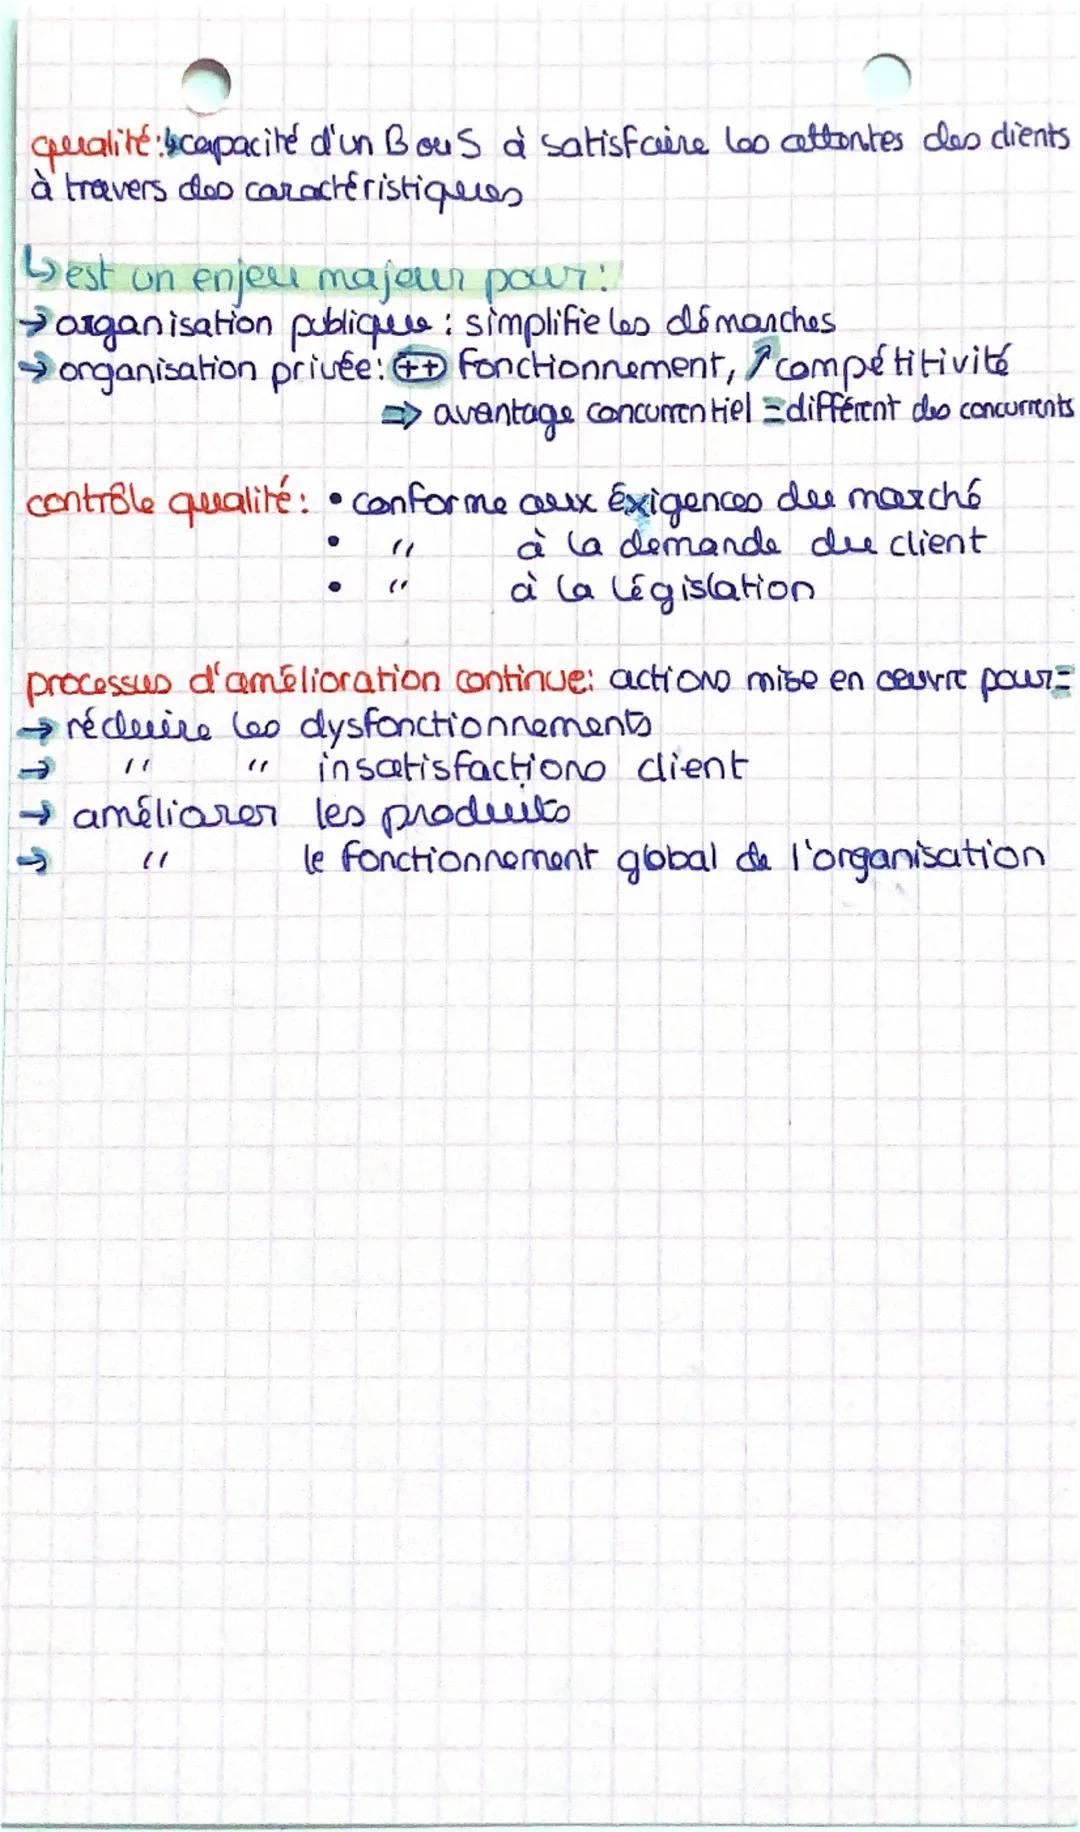 qualité:↳capacité d'un B ou S à satisfaire les attentes des clients
à travers des caractéristiques
↳ est un enjeu majeur pour:
→ organisation publique : simplifie les démarches
→ organisation privée: ++ fonctionnement, ↗ compétitivité
⇒ avantage concurrentiel = différent des concurrents
contrôle qualité: • conforme aux éxigences du marché
• " à la demande du client
• " à la législation
processus d'amélioration continue: actions mise en œuvre pour=
→ réduire les dysfonctionnements
→ " " insatisfactions client
→ améliorer les produits
→ " le fonctionnement global de l'organisation